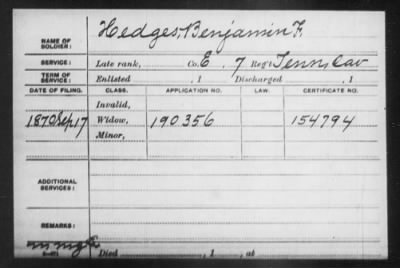 NAME OF SOLDIER: Hedges, Benjamin F.
SERVICE: Late rank, Co. E, 7 Reg't Tenn, Cav
TERM OF SERVICE: Enlisted , 1 Discharged , 1
DATE OF FILING. CLASS. APPLICATION NO. LAW. CERTIFICATE NO.
Invalid,
1870 Sep 17 Widow, 190.356 154794
Minor,
ADDITIONAL SERVICES:
REMARKS:
Died , 1 , at